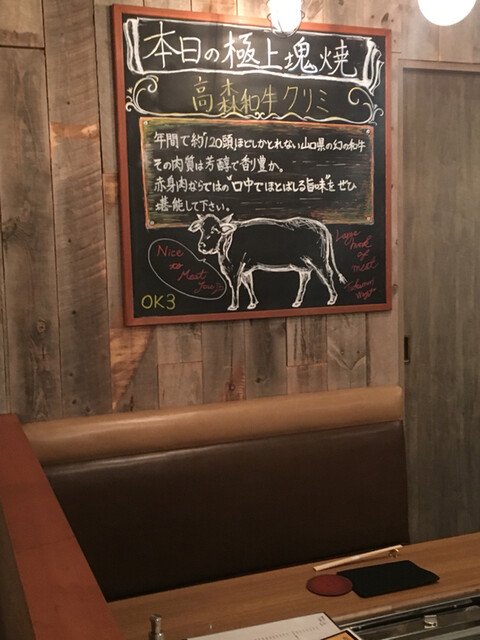 本日の極上塊焼
高森和牛クリミ
年間で約120頭ほどしかとれない山口県の幻の和牛
その肉質は芳醇で香り豊か。
赤身肉ならではの"口中でほとばしる旨味"をぜひ
堪能して下さい。
Nice
to
Meat
You
OK3
Large
hook
of
meat